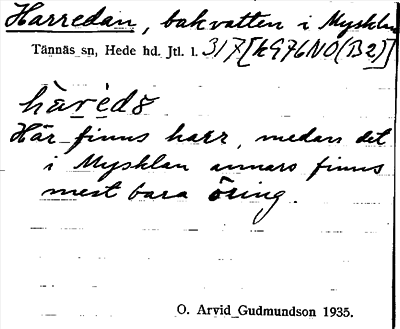 Harredan, bakvatten i Mysklan
Tännäs sn, Hede hd. Jtl. l. 317 [K976NO(B2)]
hàrèdȣ
Här finns harr, medan det
i Mysklan annars finns
mest bara öring.
O. Arvid Gudmundson 1935.